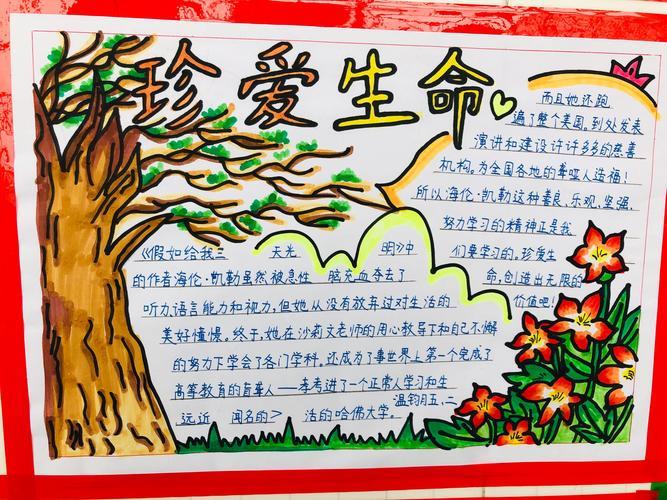 珍爱生命
《假如给我三天光明》中
的作者海伦·凯勒虽然被急性脑充血夺去了
听力语言能力和视力,但她从没有放弃过对生活的
美好憧憬。终于,她在沙莉文老师的用心教导下和自己不懈
的努力下学会了各门学科。还成为了事世界上第一个完成了
高等教育的盲聋人——李考进了一个正常人学习和生
远近闻名的>活的哈佛大学。
温钧月五、二
而且她还跑
遍了整个美国。到处发表
演讲和建设许许多多的慈善
机构。为全国各地的聋哑人造福!
所以海伦·凯勒这种善良、乐观、坚强、
努力学习的精神正是我
们要学习的。珍爱生
命,创造出无限的
价值吧!